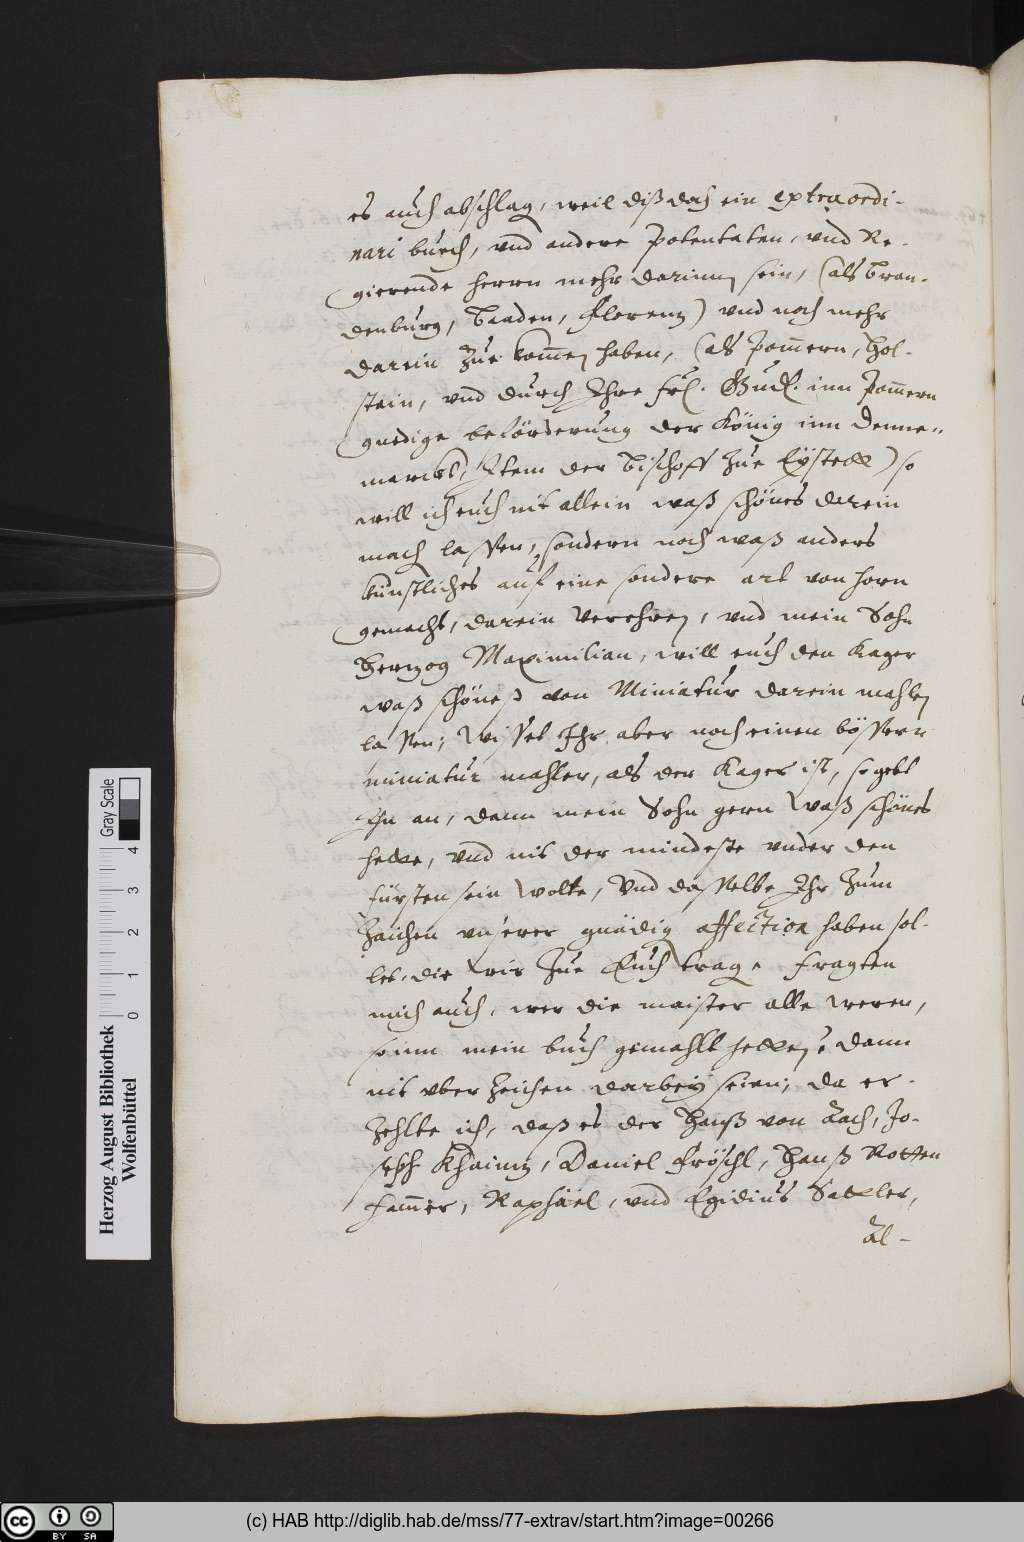 es auch abschlag, weil diß doch ein extraordi-
nari buech, vnd andere Potentaten, vnd Re-
gierende herrn mehr darinnen sein, (als Bran-
denburg, Baaden, Florenz) vnd noch mehr
darein zue kommen haben, (als Pommern, Hol-
stein, vnd durch Ihre frl. Gnd. inn Pommern
gnedige beförderung der König inn Denne-
marckt, Item der Bischoff zue Eystett) so
will ich euch nit allein waß schönes darein
mach lassen, sondern noch waß anders
künstliches auf eine sondere art von horn
gemacht, darein verehren, vnd mein Sohn
Herzog Maximilian, will euch den Kager
waß schöneß von Miniatur darein mahlen
lassen; Wisset Ihr aber noch einen bössern
miniatur mahler, als der Kager ist, so gebt
Ihn an, dann mein Sohn gern waß schönes
hette, vnd nit der mindeste vnder den
fürsten sein wolte, Vnd dasselbe Ihr zum
zaichen vnserer gnädig affection haben sol-
let, die wir zue Euch trage. fragten
mich auch, wer die maister alle weren,
so inn mein buch gemahlt hetten, dann
nit vber zeichen darbey seien; da er-
zehlte ich, daß es der Hanß von Aach, Jo-
seph Khainz, Daniel Fröschl, Hanß Rotten
hammer, Raphael, vnd Egidius Sattler,
Al-
Gray Scale
0 1 2 3 4
Herzog August Bibliothek
Wolfenbüttel
cc BY SA
(c) HAB http://diglib.hab.de/mss/77-extrav/start.htm?image=00266